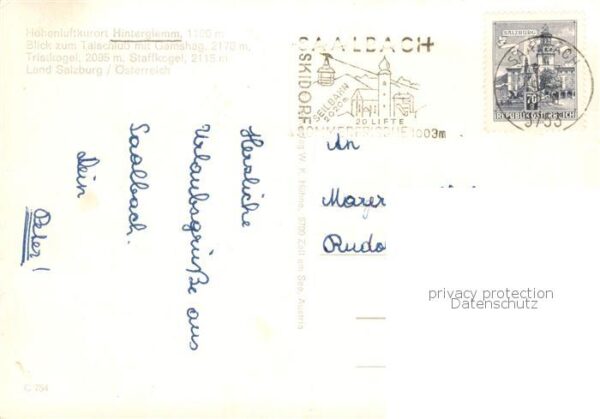 Höhenluftkurort Hinterglemm, 1100 m
Blick zum Talschluß mit Gamshag, 2170 m,
Tristkogel, 2095 m, Staffkogel, 2115 m
Land Salzburg / Österreich
SAALBACH
SKIDORF
SEILBAHN
2020m
20 LIFTE
SOMMERFRISCHE 1003m
SALZBURG
70
REPUBLIK ÖSTERREICH
SAALBACH
5753
An
Mayer
Rudo
Herzliche
Urlaubsgrüße aus
Saalbach.
Dein
Peter!
Verlag W. K. Höhne, 5700 Zell am See, Austria
privacy protection
Datenschutz
C 754